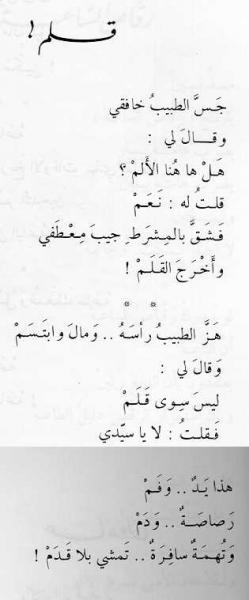 قـــلـــم !
جَسَّ الطبيبُ خافقي
وقـــالَ لي :
هَلْ ها هُنا الأَلَمْ ؟
قلتُ له : نَعَمْ
فَشَقَّ بالمِشرَطِ جيبَ مِعْطَفي
وأَخْرَجَ القَلَمْ !
* *
هَزَّ الطبيبُ رأسَهُ .. وَمالَ وابتَسَمْ
وَقالَ لي :
ليسَ سِوى قَلَمْ
فَقلتُ : لا يا سيّدي
هذا يَدٌ .. وَفَمْ
رَصاصَةٌ .. وَدَمْ
وَتُهمَةٌ سافِرَةٌ .. تَمشي بِلا قَدَمْ !